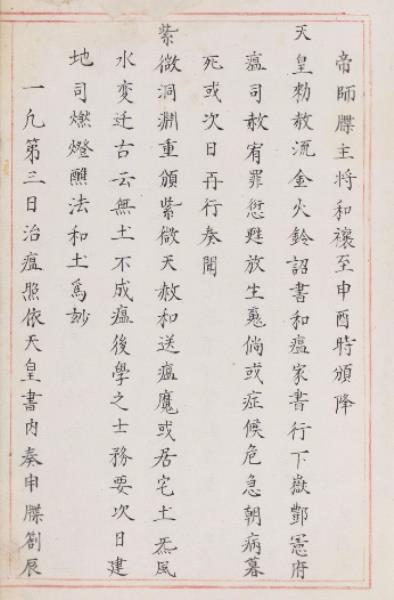 帝師牒主將和禳至申酉時頒降
天皇勑赦流金火鈴詔書和瘟家書行下嶽酆冥府
瘟司赦宥罪愆甦放生䰟倘或症候危急朝病暮
死或次日再行奏聞
紫微洞淵重頒紫微天赦和送瘟魔或居宅土炁風
水变迁古云無土不成瘟後學之士務要次日建
地司燃燈醮法和土為妙
一凢第三日治瘟照依天皇書内奏申牒劄辰